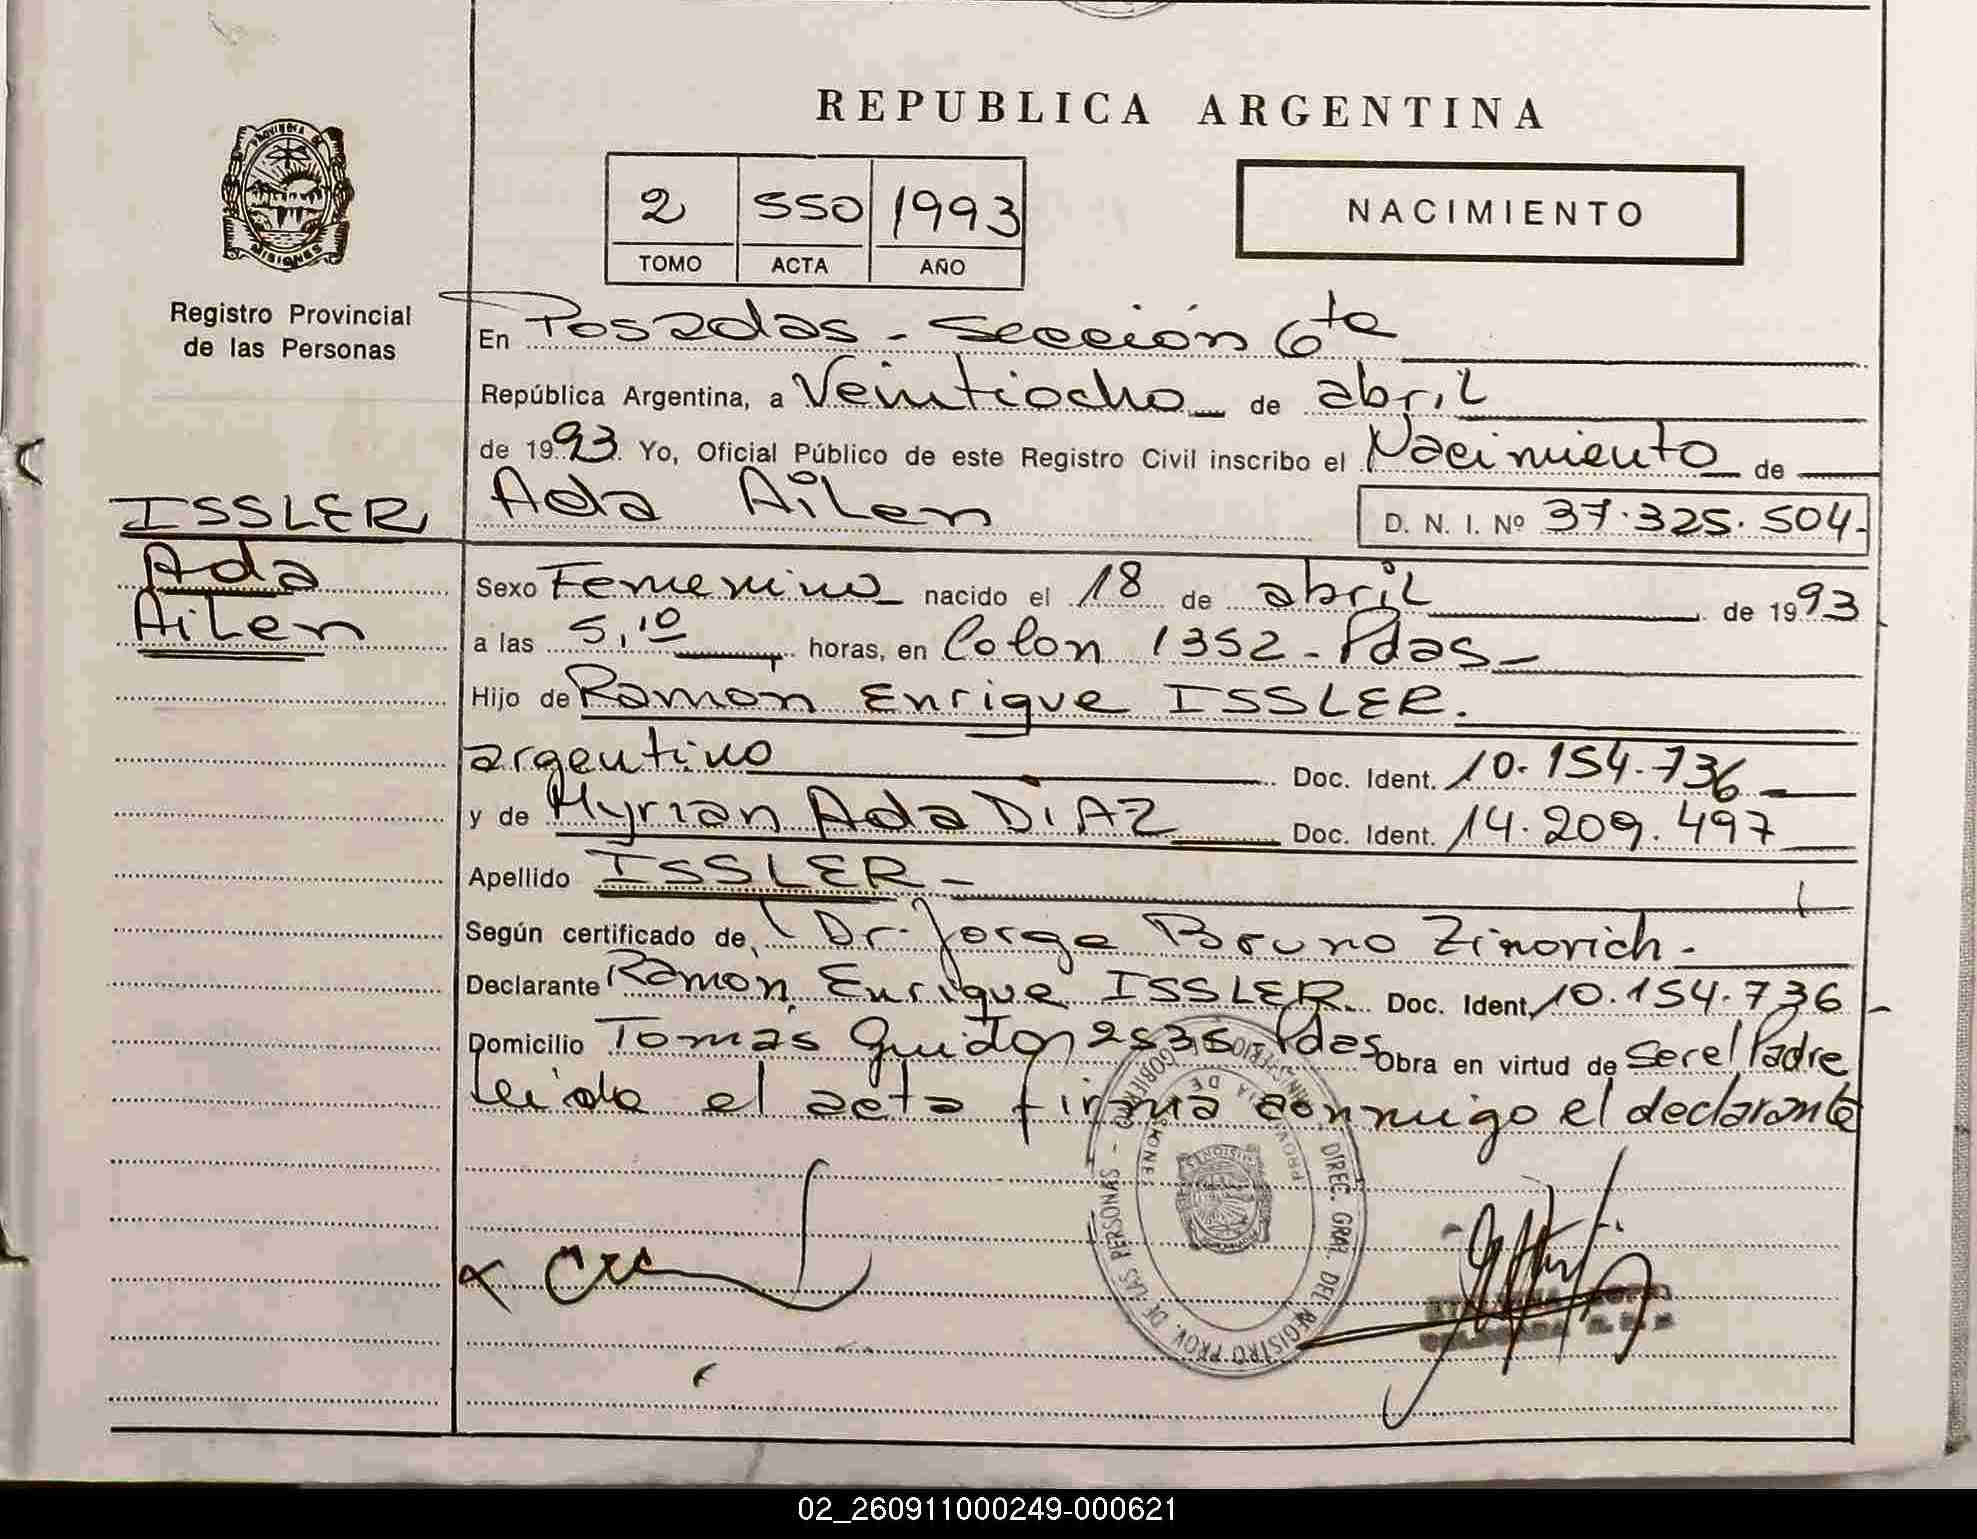 REPUBLICA ARGENTINA
PROVINCIA DE
MISIONES
Registro Provincial
de las Personas
2 550 1993
TOMO ACTA AÑO
NACIMIENTO
En Posadas - Sección 6ta
República Argentina, a Veintiocho de abril
de 1993. Yo, Oficial Público de este Registro Civil inscribo el Nacimiento de
ISSLER Ada Ailen D. N. I. Nº 37.325.504-
Ada
Ailen
Sexo Femenino nacido el 18 de abril de 1993
a las 5,10 horas, en Colon 1352 - Pdas -
Hijo de Ramón Enrique ISSLER.
argentino Doc. Ident. 10.154.736
y de Myrian Ada DIAZ Doc. Ident. 14.209.497
Apellido ISSLER -
Según certificado de, Dr. Jorge Bruno Zinovich -
Declarante Ramón Enrique ISSLER. Doc. Ident. 10.154.736 -
Domicilio Tomás Guido 2535 - Pdas Obra en virtud de Ser el Padre
leida el acta firma conmigo el declarante
DIREC. GRAL. DEL REGISTRO PROV. DE LAS PERSONAS -
PROVINCIA DE MISIONES
02_260911000249-000621